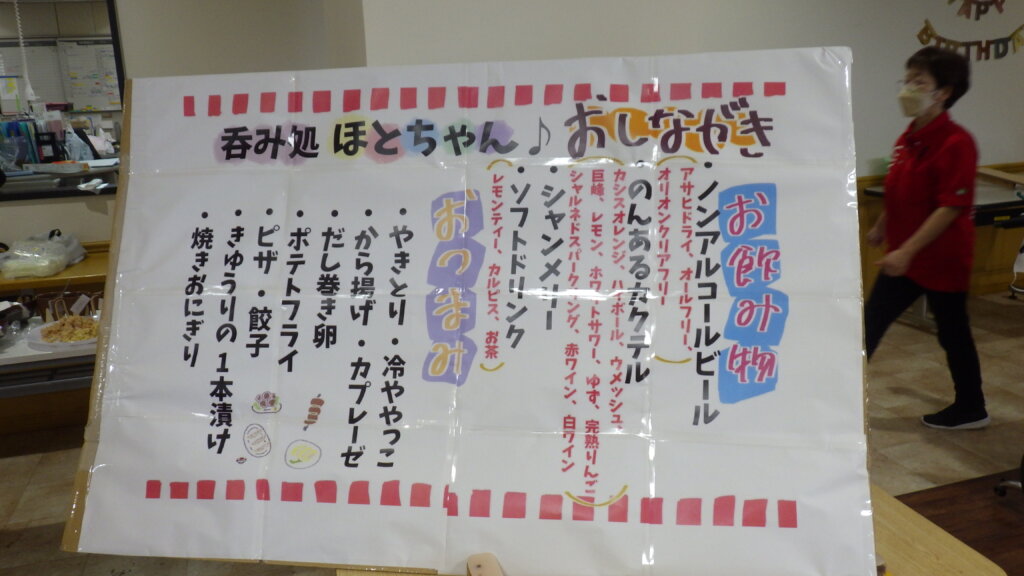 呑み処 ほとちゃん♪ おしながき
お飲み物
・ノンアルコールビール
(アサヒドライ、オールフリー、
オリオンクリアフリー)
・のんあるカクテル
(カシスオレンジ、ハイボール、ウメッシュ、
巨峰、レモン、ホワイトサワー、ゆず、完熟りんご
シャルネドスパークリング、赤ワイン、白ワイン)
・シャンメリー
・ソフトドリンク
(レモンティー、カルピス、お茶)
おつまみ
・やきとり・冷ややっこ
・から揚げ・カプレーゼ
・だし巻き卵
・ポテトフライ
・ピザ・餃子
・きゅうりの1本漬け
・焼きおにぎり
BIRTHD